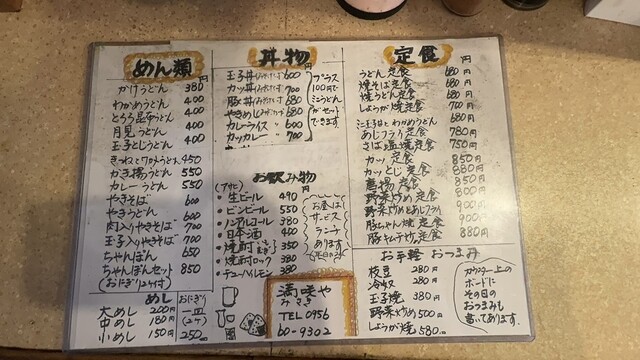 めん類 円
かけうどん 380
わかめうどん 400
とろろ昆布うどん 400
月見うどん 400
玉子とじうどん 400
きつねとワカメうどん 450
かき揚うどん 550
カレーうどん 550
やきそば 600
やきうどん 600
肉入りやきそば 700
玉子入りやきそば 700
ちゃんぽん 650
ちゃんぽんセット 850
(おにぎり2ケ付)
めし
大めし 200円
中めし 180円
小めし 150円
おにぎり
一皿
(2ケ)
250
丼物 円
玉子丼 600
カツ丼 700
豚丼 680
やきめし 680
カレーライス 〃 600
カツカレー 〃 700
プラス
100円で
ミニうどん
がセット
できます。
お飲み物
(アサヒ) 円
・生ビール 490
・ビンビール 550
・ノンアルコール 380
・日本酒 400
・焼酎 350
・焼酎ロック 380
・チューハイレモン 380
お昼は
サービス
ランチ
あります
満咲や
みさき
TEL 0956
60-9302
定食 円
うどん定食 680円
焼そば定食 680円
焼うどん定食 680円
しょうが焼定食 700円
ミニ玉子丼とわかめうどん 680円
あじフライ定食 780円
さば塩焼定食 750円
カツ定食 850円
カツとじ定食 850円
唐揚定食 800円
野菜炒め定食 800円
野菜炒めとあじフライ 900円
豚ちゃん焼定食 900円
豚キムチ炒め定食 880円
お手軽おつまみ
枝豆 280円
冷奴 280円
玉子焼 380円
野菜炒め 500円
しょうが焼 580円
カウンター上の
ボードに
その日の
おつまみも
書いてあります。